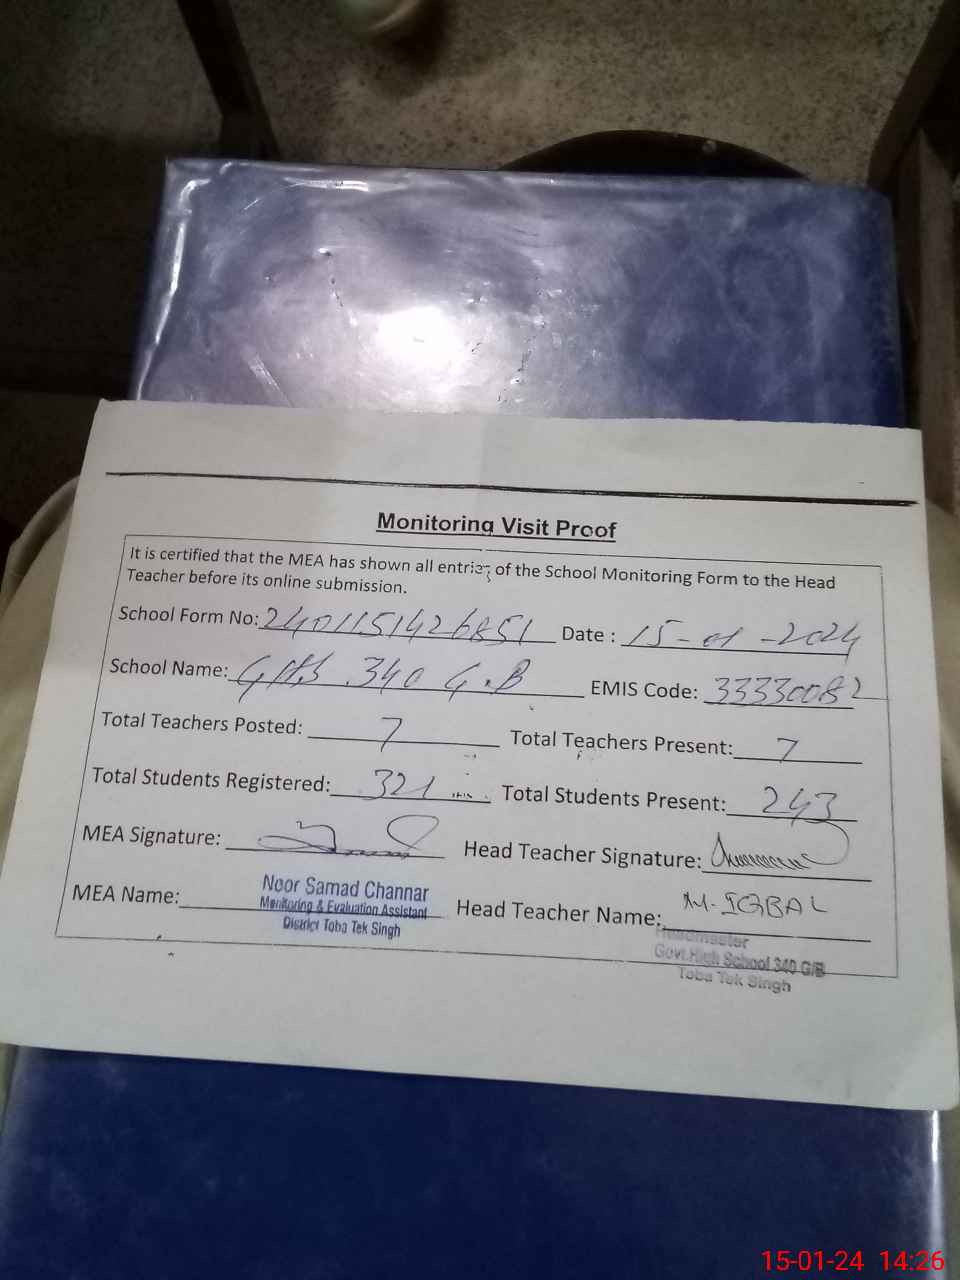 Monitoring Visit Proof
It is certified that the MEA has shown all entries of the School Monitoring Form to the Head
Teacher before its online submission.
School Form No: 2401151426851 Date : 15-01-2024
School Name: GHS 340 G.B EMIS Code: 33330082
Total Teachers Posted: 7 Total Teachers Present: 7
Total Students Registered: 321 Total Students Present: 243
MEA Signature: Head Teacher Signature:
MEA Name: Noor Samad Channar Head Teacher Name: M. IQBAL
Monitoring & Evaluation Assistant
District Toba Tek Singh
Headmaster
Govt.High School 340 G/B
Toba Tek Singh
15-01-24 14:26